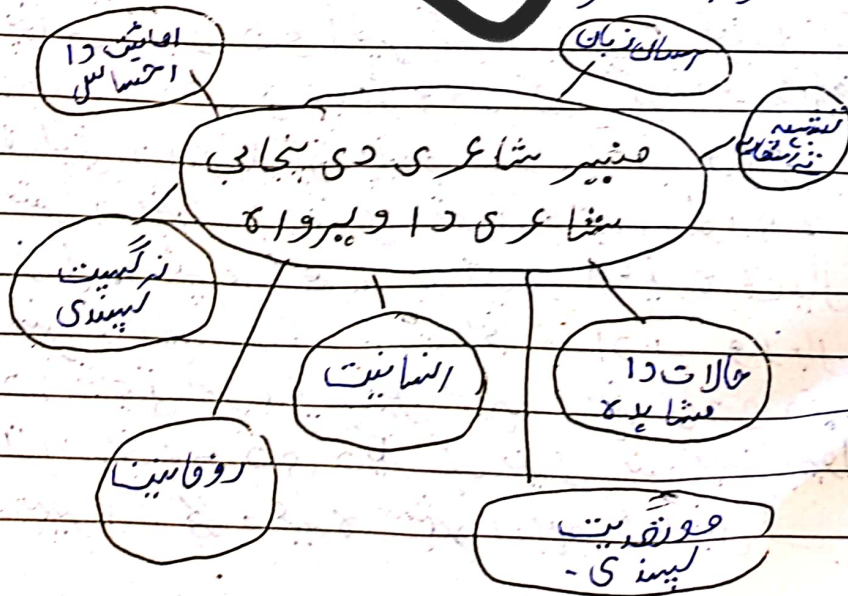 اپنائیت دا
احساس
سادی زبان
تشبیہ
منیر شاعری دی پنجابی
شاعری دا ویروا
نرگسیت
پسندی
انسانیت
حالات دا
مشاہدہ
رومانیت
پسندی -